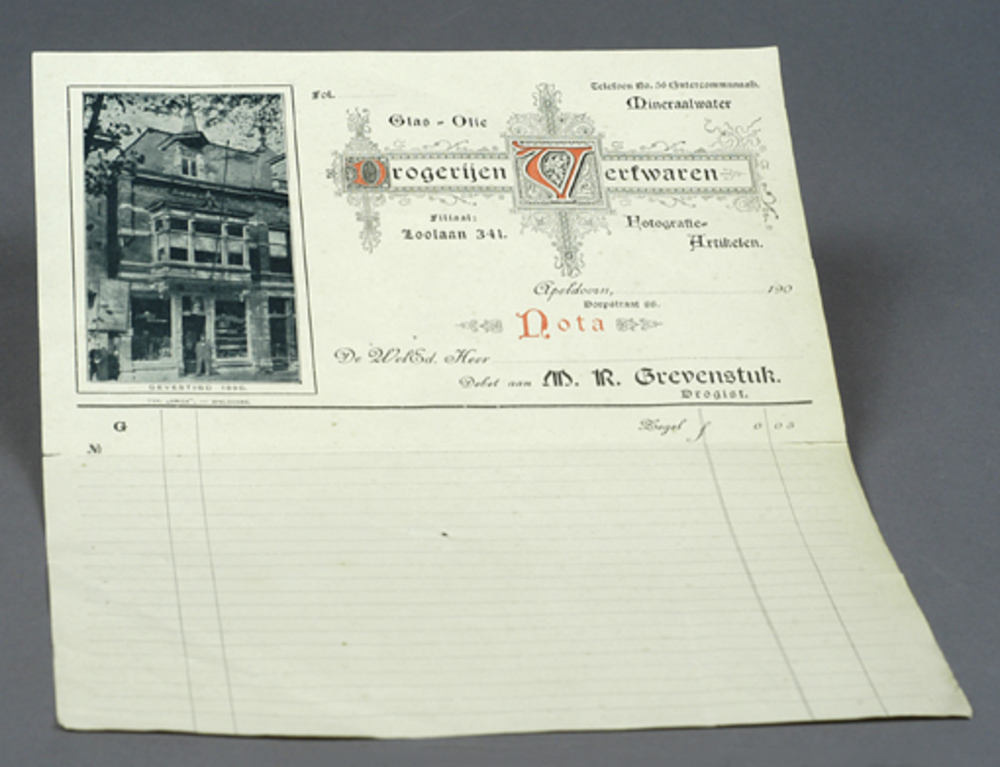 Fol.
Telefoon No. 56 (Intercommunaal).
Glas - Olie
Mineraalwater
Drogerijen Verfwaren
Filiaal:
Loolaan 341.
Fotografie-
Artikelen.
Apeldoorn, 190
Dorpstraat 98.
Nota
De WelEd. Heer
Debet aan M. R. Grevenstuk.
Drogist.
GEVESTIGD 1890.
G
Zegel f 0 05
No